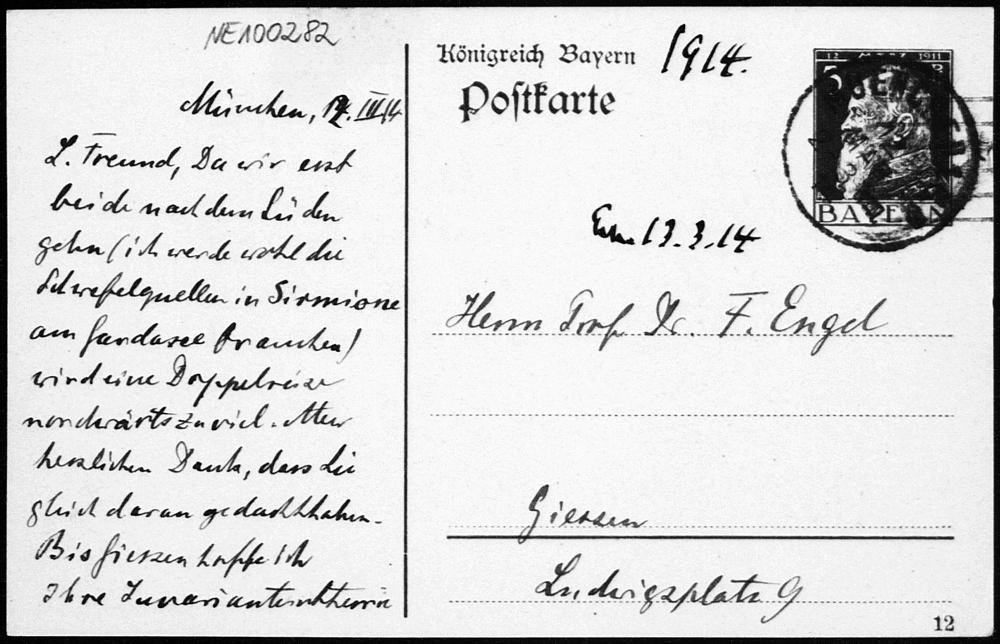 NE100282
München, 12. III 14
L. Freund, Da wir erst
beide nach dem Süden
gehn (ich werde wohl die
Schwefelquellen in Sirmione
am Gardasee brauchen)
wird eine Doppelreise
nordwärts zu viel. Aber
herzlichen Dank, dass Sie
gleich daran gedacht haben.
Bis Giessen hoffe ich
Ihre Invariantentheorie
Königreich Bayern
1914.
Postkarte
12 1911
5
BAYERN
13.3.14
Herrn Prof Dr. F. Engel
Giessen
Ludwigsplatz 9
12